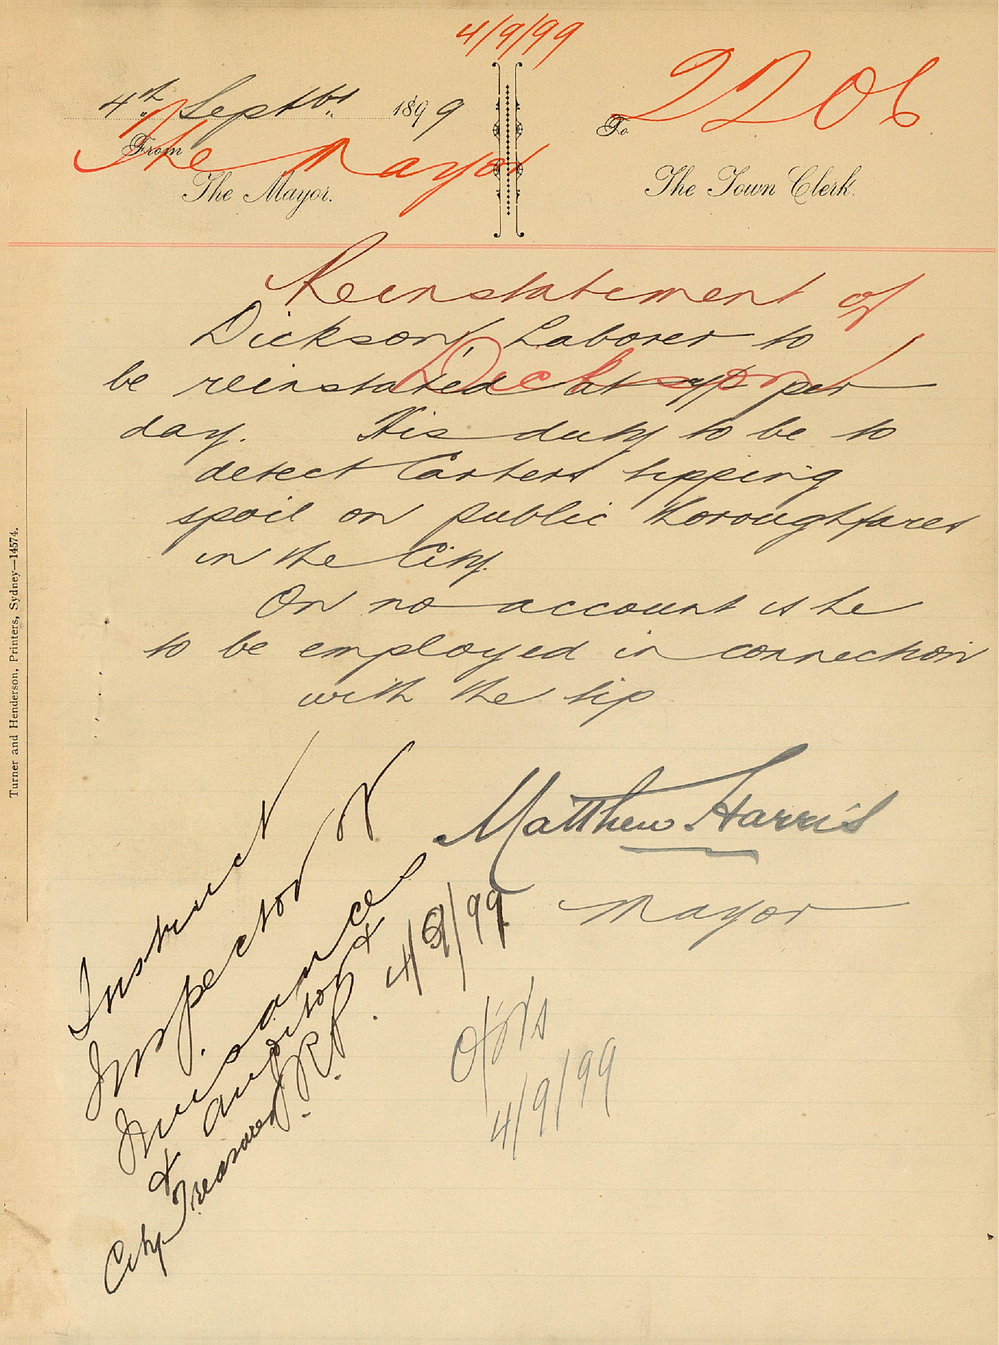 4/9/99
4th Septbr. 1899
2206
From
To
The Mayor
The Mayor.
The Town Clerk.
Reinstatement of
Dickson
Dickson, Laborer to
be reinstated at 7/- per
day. His duty to be to
detect Carters tipping
spoil on public thoroughfares
in the City.
On no account is he
to be employed in connection
with the tip
Matthew Harris
Mayor
Instruct
Inspector of
Nuisances
& auditor &
City Treasurer
4/9/99
4/9/99
Turner and Henderson, Printers, Sydney—14574.